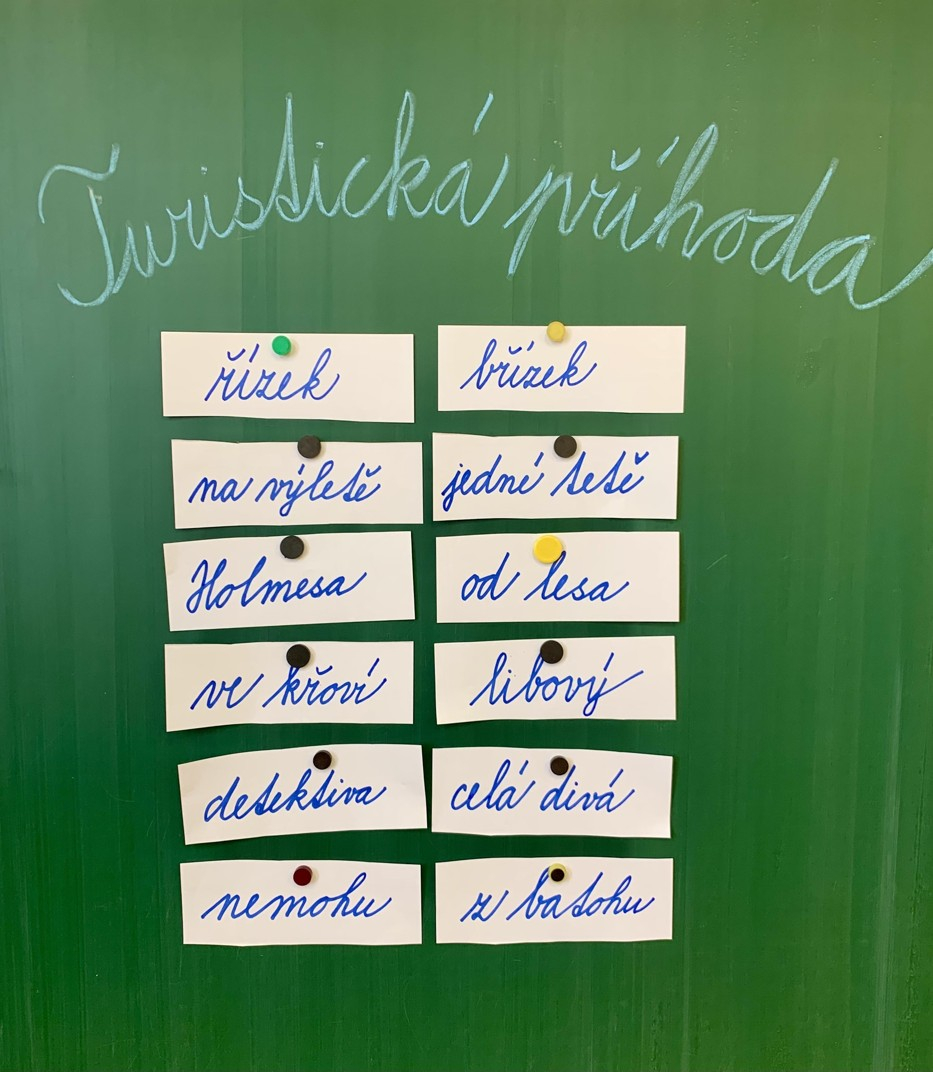 Turistická příhoda
řízek břízek
na výletě jedné tetě
Holmesa od lesa
ve křoví libový
detektiva celá divá
nemohu z batohu